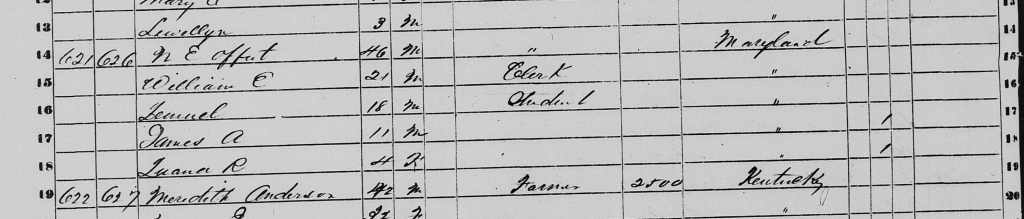 12 Mary
13 Lewellyn 3 m " 13
14 621 626 N E Offut 46 m " Maryland 14
15 William E 21 m Clerk " 15
16 Lemuel 18 m Student " 16
17 James A 11 m " 1 17
18 R 4 F " 1 18
19 622 627 Meredith Anderson 42 m Farmer 2500 Kentucky 19
F " 20